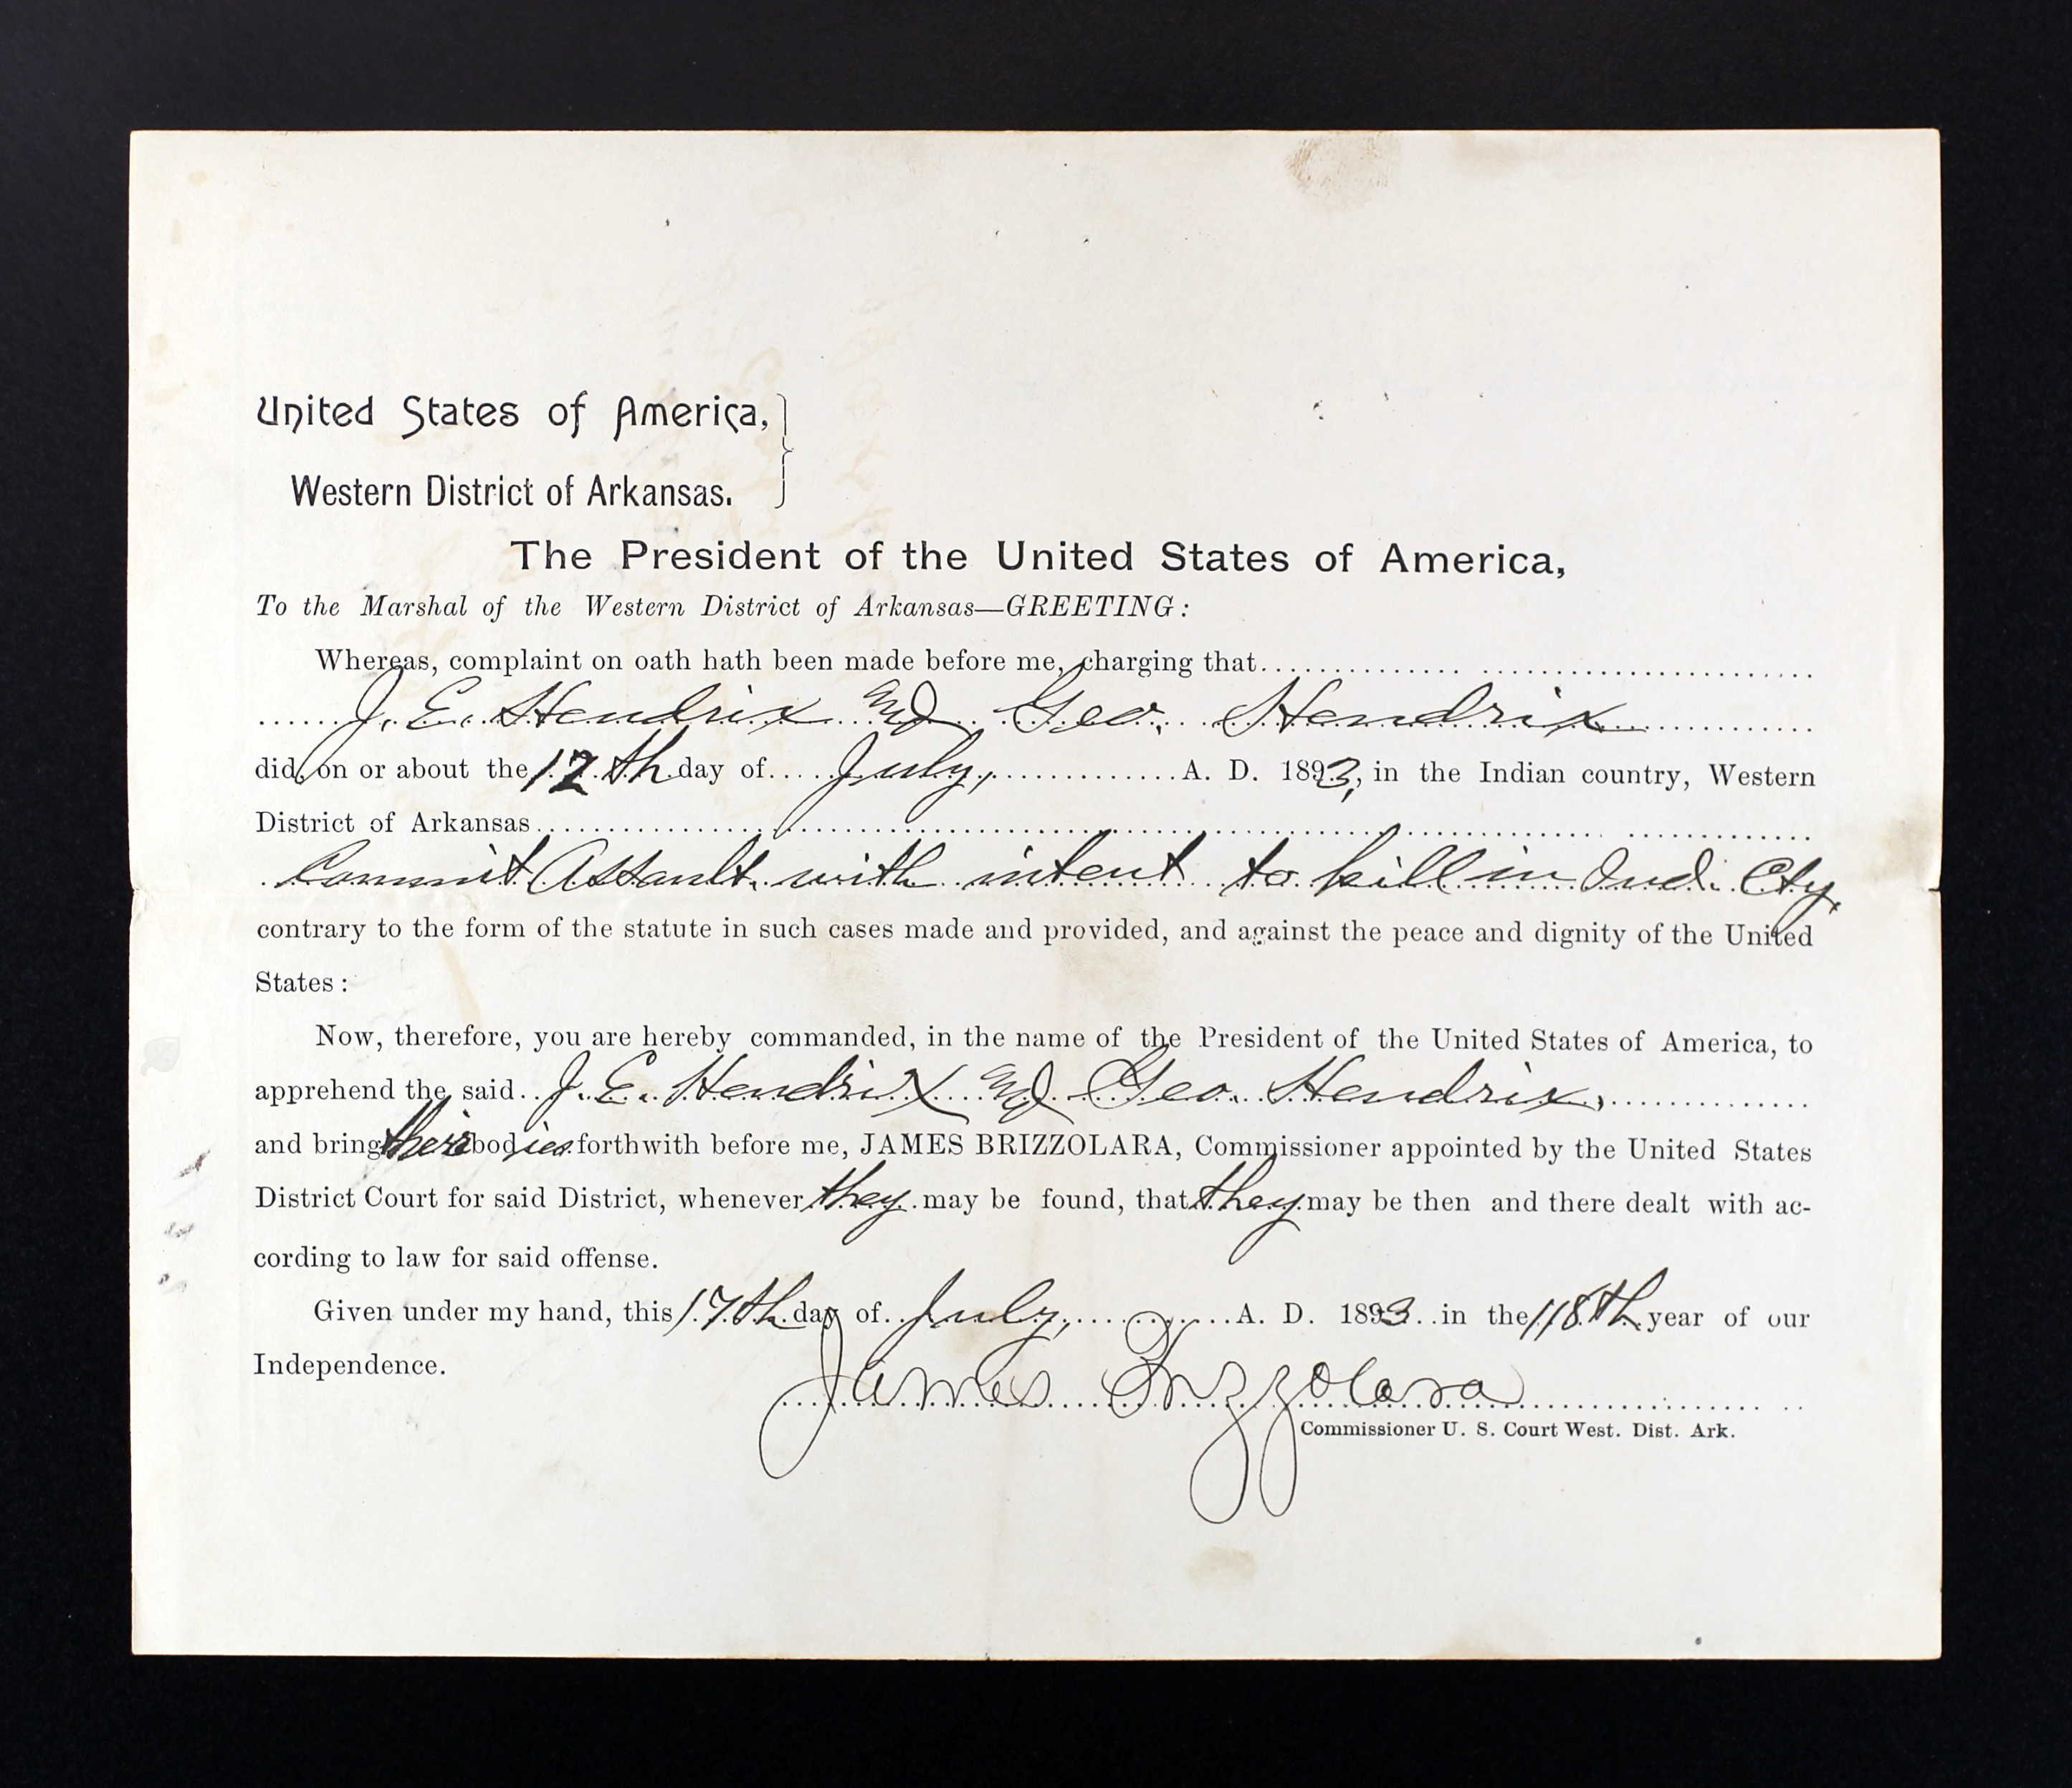 United States of America,
Western District of Arkansas.
The President of the United States of America,
To the Marshal of the Western District of Arkansas—GREETING:
Whereas, complaint on oath hath been made before me, charging that
J. E. Hendrix and Geo. Hendrix
did, on or about the 12th day of July, A. D. 1893, in the Indian country, Western
District of Arkansas
Commit Assault with intent to kill in Ind. Cty,
contrary to the form of the statute in such cases made and provided, and against the peace and dignity of the United
States:
Now, therefore, you are hereby commanded, in the name of the President of the United States of America, to
apprehend the said J. E. Hendrix and Geo. Hendrix,
and bring their bodies forthwith before me, JAMES BRIZZOLARA, Commissioner appointed by the United States
District Court for said District, whenever they may be found, that they may be then and there dealt with ac-
cording to law for said offense.
Given under my hand, this 17th day of July, A. D. 1893 in the 118th year of our
Independence.
James Brizzolara
Commissioner U. S. Court West. Dist. Ark.